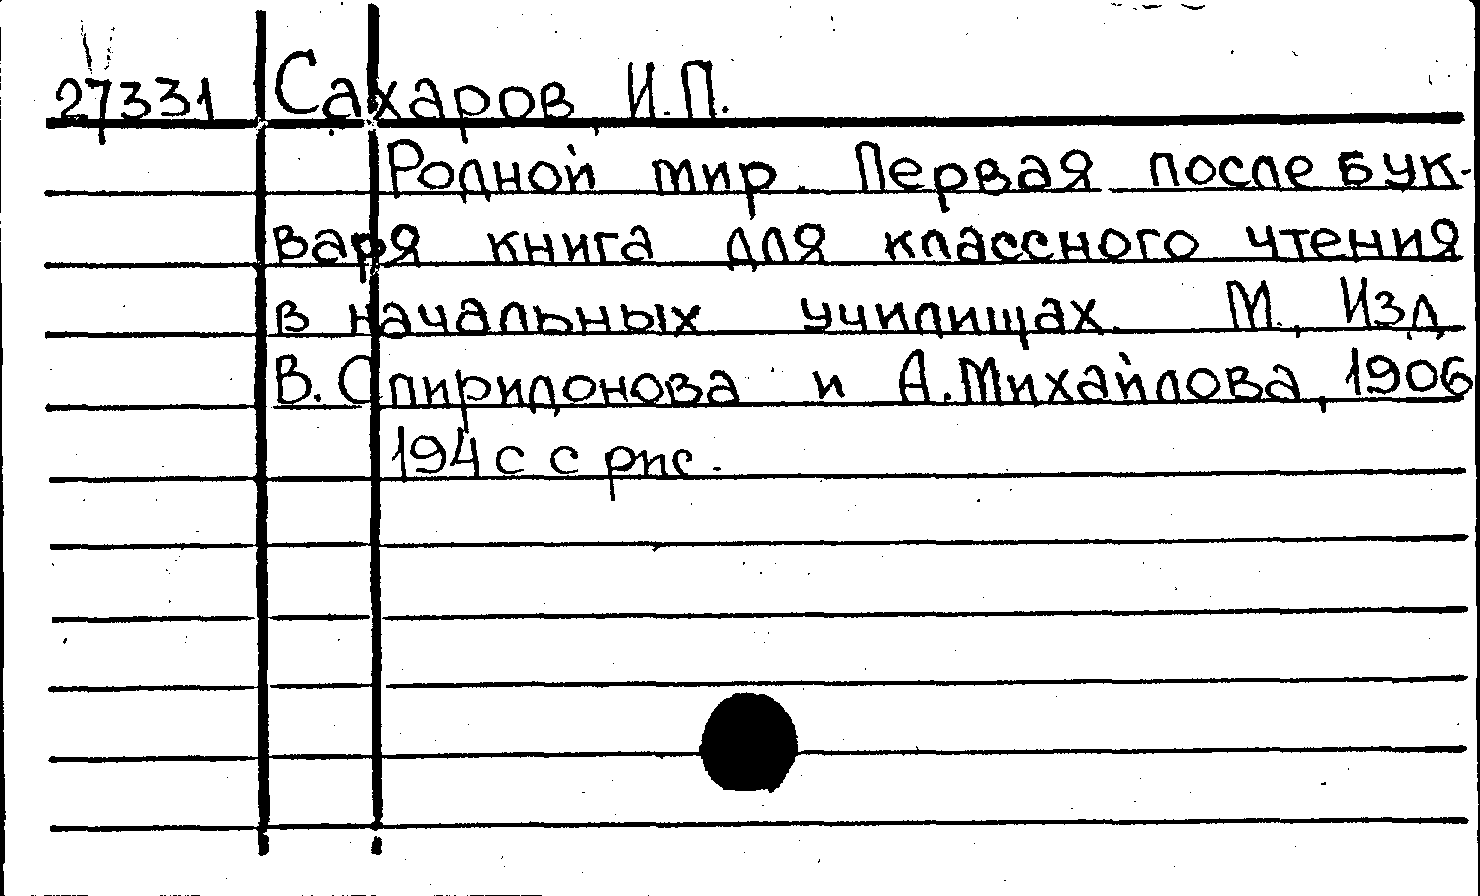 27331 Сахаров, И.П.
Родной мир. Первая после бук-
варя книга для классного чтения
в начальных училищах. М., Изд.
В. Спиридонова и А. Михайлова, 1906
194 с с рис.